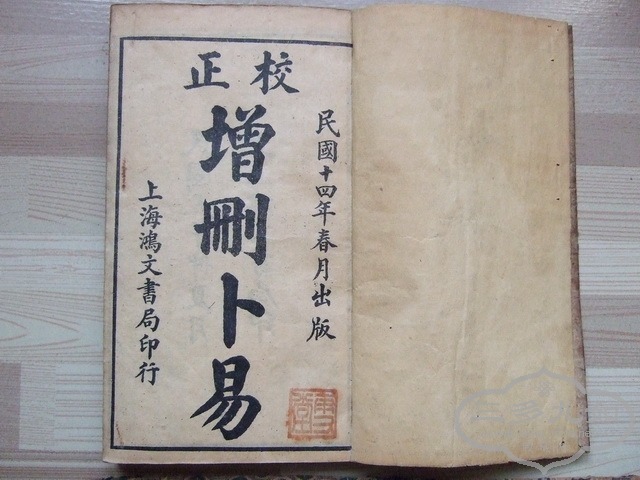 校正
民國十四年春月出版
增刪卜易
上海鴻文書局印行